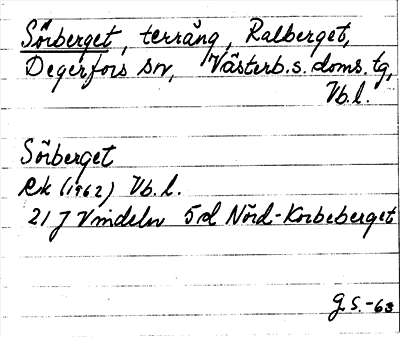 Sörberget, terräng, Ralberget,
Degerfors sn, Västerb.s. doms. tg,
Vb.l.
Sörberget
Rk (1962) Vb.l.
21 J Vindeln 5d Nörd-Korbeberget
G.S.-63